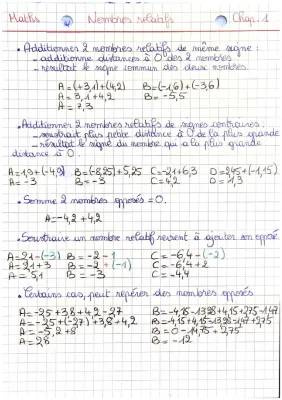 Maths Nombres relatifs Chap. 1
• Additionner 2 nombres relatifs de même signe :
- additionne distances à 0 des 2 nombres
- résultat le signe commun des deux nombres.
A=(+3,1)+(4,2) B=(-1,6)+(-3,6)
A=3,1+4,2 B=-5,5
A=7,3
• Additionner 2 nombres relatifs de signes contraires :
- soustrait plus petite distance à 0 de la plus grande
- résultat le signe du nombre qui a la plus grande
distance à 0.
A=1,9+(-4,9) B=(-8,25)+5,25 C=-2,1+6,3 D=2,45+(-1,15)
A=-3 B=-3 C=4,2 D=1,3
• Somme 2 nombres opposés=0.
A=-4,2+4,2
• Soustraire un nombre relatif revient à ajouter son opposé
A=2,1-(-3) B=-2-1 C=-6,4-(-2)
A=2,1+3 B=-2+(-1) C=-6,4+2
A=5,1 B=-3 C=-4,4
• Certains cas, peut repérer des nombres opposés
A=-25+3,8+4,2-27 B=-4,15-13,28+4,15+2,75-1,47
A=-25+(-27)+3,8+4,2 B=-4,15+4,15-13,28-1,47+2,75
A=-5,2+8 B=0-14,75+2,75
A=2,8 B=-12